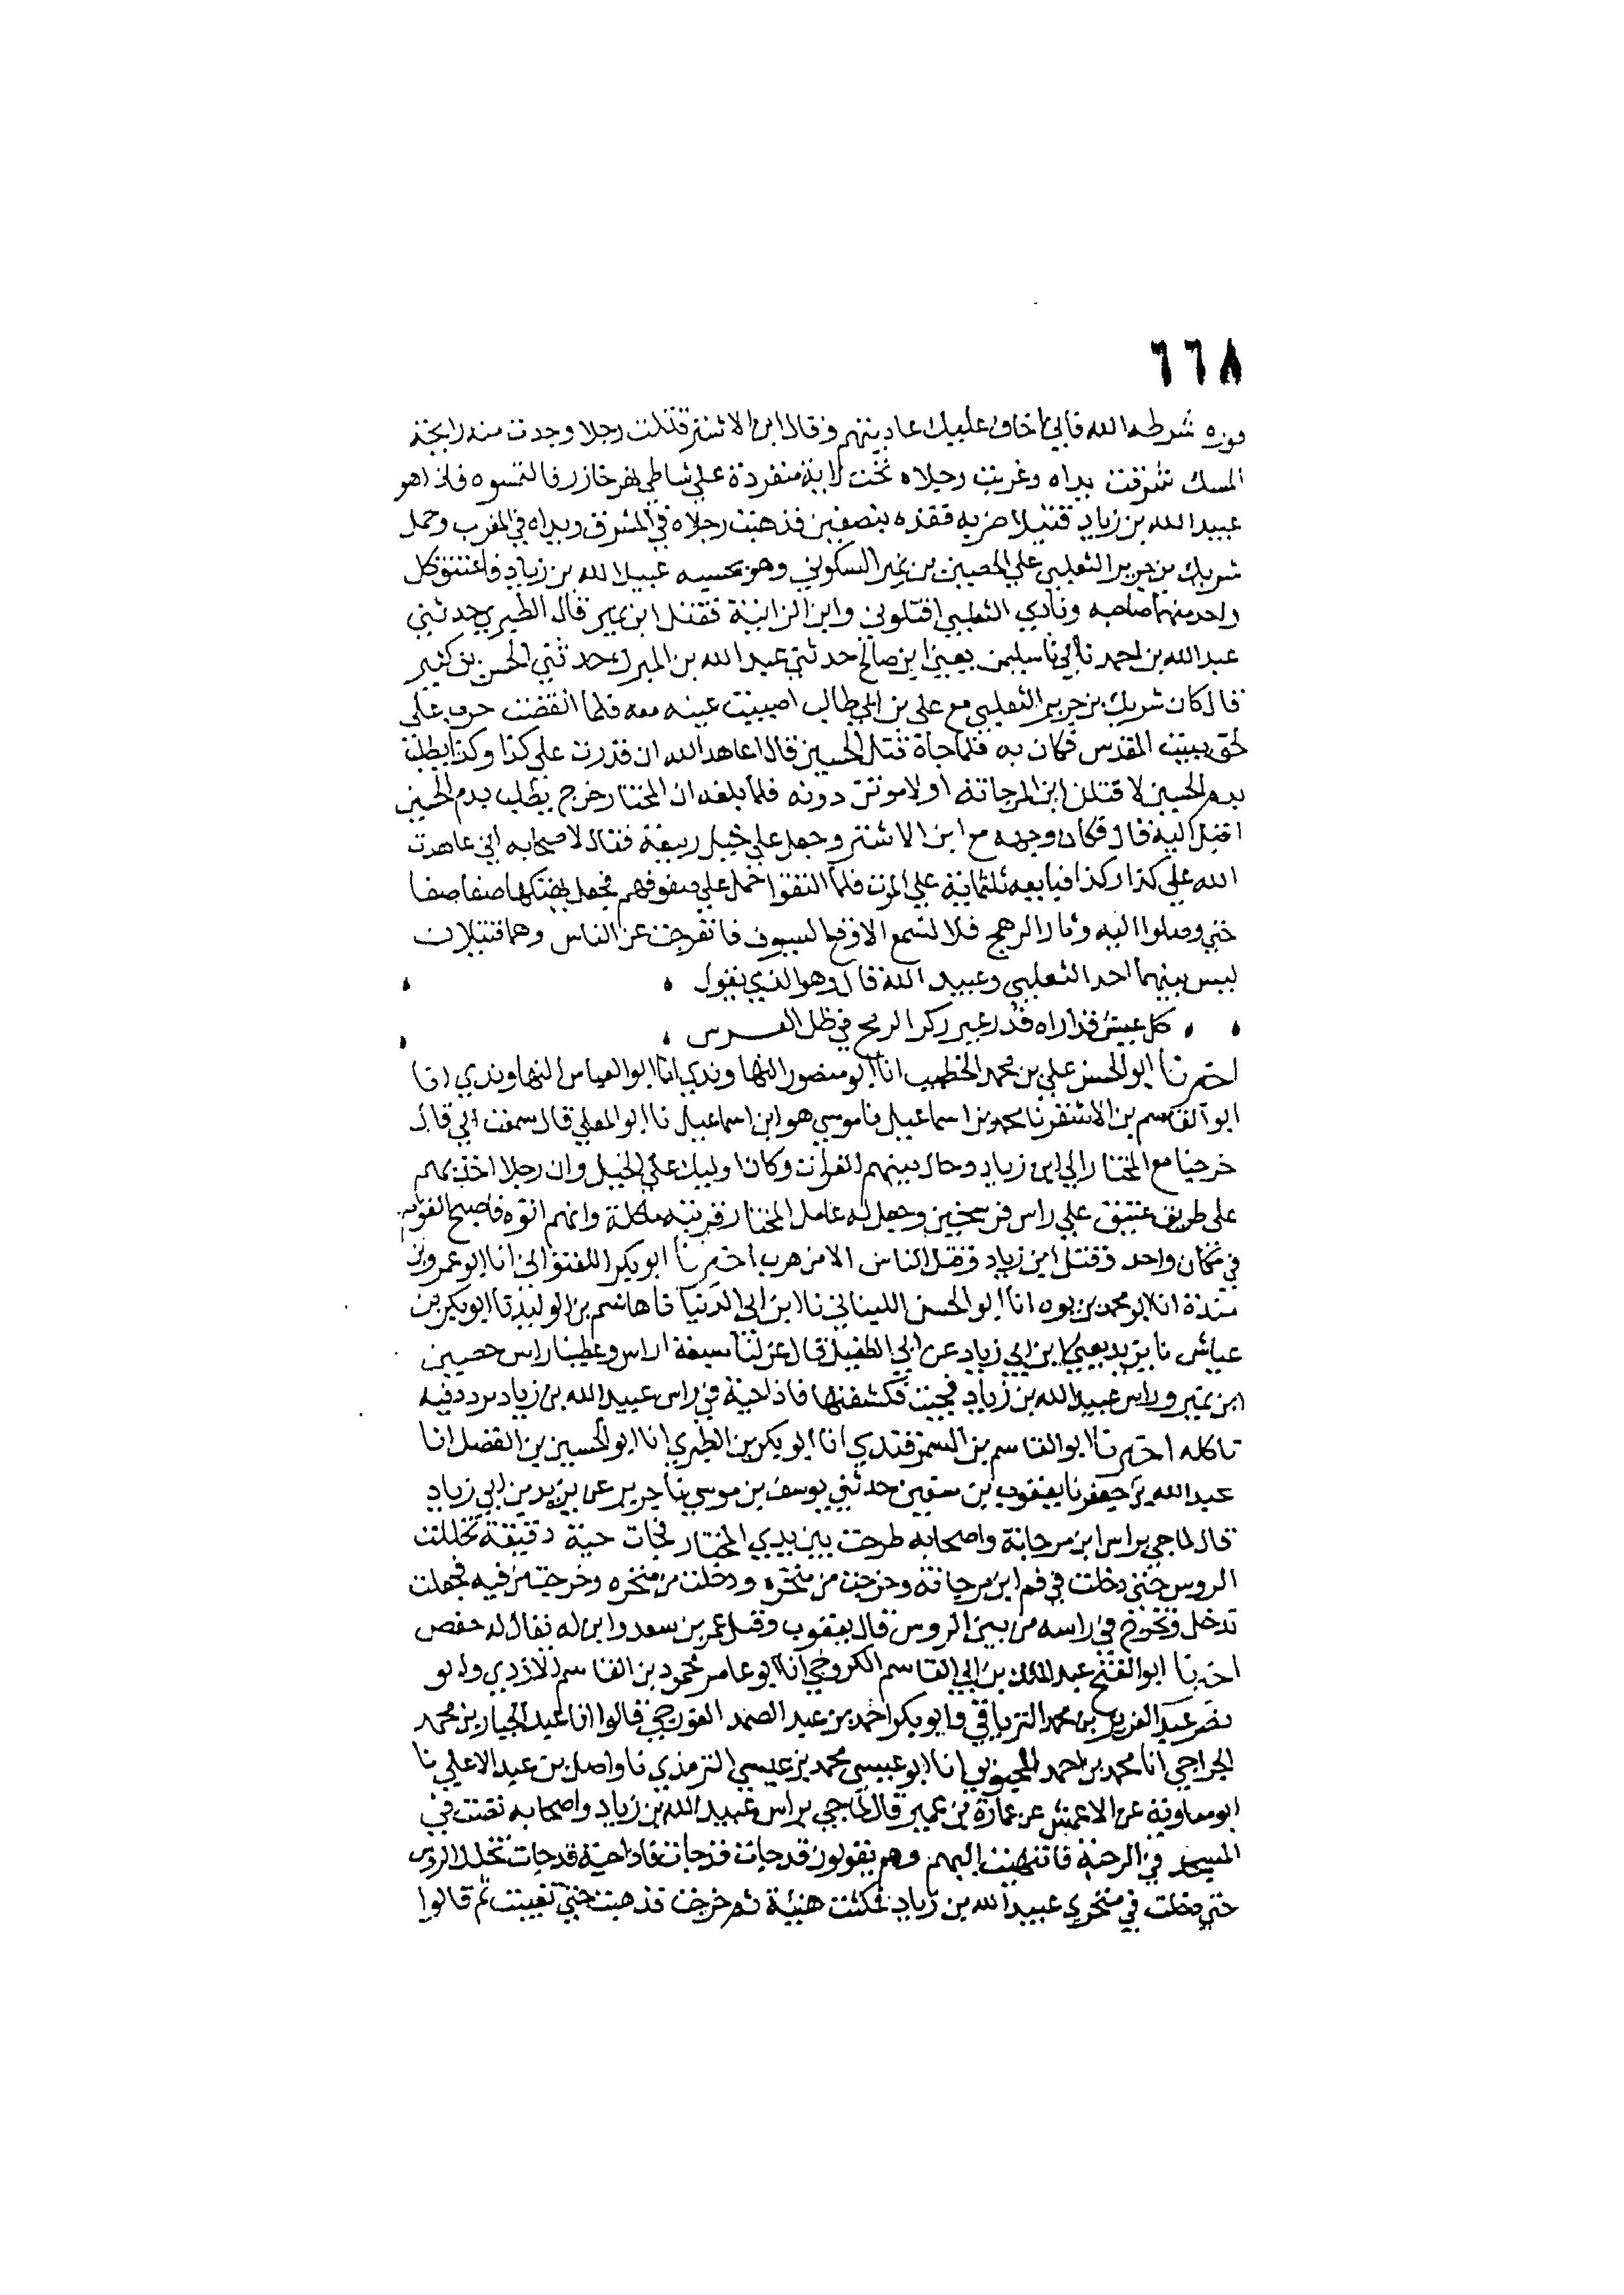 ٦٦٨
شرطه الله فاني اخاف عليك عاديتهم وقال ابن الاشتر قتلت رجلا وجدت منه رايحة
المسك شرقت يداه وغربت رجلاه تحت راية منفردة على شاطي نهر خازر فالتمسوه فاذا هو
عبيد الله بن زياد قتيلا ضربه فقده بنصفين فذهبت رجلاه في المشرق ويداه في المغرب وحمل
شريك بن جرير التعلبي علي الحصين بن نمير السكوني وهو يحسبه عبيد الله بن زياد فاعتنق كل
واحد منهما صاحبه ونادي التغلبي اقتلوني وابن الزانية فقتل ابن نمير قال الطبري حدثني
عبد الله بن احمد نا ابي نا سليمن يعني ابن صالح حدثني عبد الله بن المبرك حدثني الحسن بن كثير
قال كان شريك بن جرير التغلبي مع علي بن ابي طالب اصيبت عينه معه فلما انقضت حرب علي
لحق ببيت المقدس فكان به فلما جاه قتل الحسين قال اعاهد الله ان قدرت على كذا وكذا يطلب
بدم الحسين لاقتلن ابن المرجانة او لاموتن دونه فلما بلغه ان المختار خرج يطلب بدم الحسين
اقبل اليه قال فكان وجهه مع ابن الاشتر وجعل علي خيل ربيعة فقال لاصحابه اني عاهدت
الله علي كذا وكذا فبايعه ثلثماية علي الموت فلما التقوا حمل علي صفوفهم فجعل يهتكها صفا صفا
حتي وصلوا اليه وثار الرهج فلا تسمع الا وقع السيوف فانفرجت عن الناس وهما قتيلان
ليس بينهما احد التغلبي وعبيد الله قال وهو الذي يقول
كل عيش قد اراه قذر غير ركز الرمح في ظل الفــرس
اخبرنا ابو الحسن علي بن محمد الخطيب انا ابو منصور النهاوندي انا ابو العباس النهاوندي انا
ابو القاسم بن الاشقر نا محمد بن اسماعيل نا موسي هو ابن اسماعيل نا ابو المعلي قال سمعت ابي قال
خرجنا مع المختار الي ابن زياد وحال بينهم الفرات وكان اوليك علي الخيل وان رجلا اخذ بهم
على طريق عتيق علي راس فرسخين وجعل له عامل المختار قريته ماكلة وانهم اتوه فاصبح القوم
في مكان واحد فقتل ابن زياد وقتل الناس الا من هرب اخبرنا ابو بكر اللفتواني انا ابو عمرو بن
مندة انا ابو محمد بن يوه انا ابو الحسن اللنباني نا ابن ابي الدنيا نا هاشم بن الوليد نا ابو بكر بن
عياش نا يزيد يعني ابن ابي زياد عن ابي الطفيل قال عزلنا سبعة اراس وغطينا راس حصين
ابن نمير وراس عبيد الله بن زياد فجيت فكشفتها فاذا حية في راس عبيد الله بن زياد تردد فيه
تاكله اخبرنا ابو القاسم بن السمرقندي انا ابو بكر بن الطبري انا ابو الحسين بن الفضل انا
عبد الله بن جعفر نا يعقوب بن سفين حدثني يوسف بن موسي نا جرير عن يزيد بن ابي زياد
قال لما جي براس ابن مرجانة واصحابه طرحت بين يدي المختار فجات حية دقيقة تخللت
الروس حتي دخلت في فم ابن مرجانة وخرجت من منخره ودخلت من منخره وخرجت من فيه فجعلت
تدخل وتخرج في راسه من بين الروس قال يعقوب وقتل عمر بن سعد وابن له يقال له حفص
اخبرنا ابو الفتح عبد الملك بن ابي القاسم الكروخي انا ابو عامر محمود بن القاسم الازدي وابو
نصر عبد العزيز بن محمد الترياقي وابو بكر احمد بن عبد الصمد الغورجي قالوا انا عبد الجبار بن محمد
الجراحي انا محمد بن احمد المحبوبي انا ابو عيسى محمد بن عيسي الترمذي نا واصل بن عبد الاعلي نا
ابو معاوية عن الاعمش عن عمارة بن عمير قال لما جي براس عبيد الله بن زياد واصحابه نضدت في
المسجد في الرحبة فانتهيت اليهم وهم يقولون قد جات قد جات فاذا حية قد جات تخلل الروس
حتي دخلت في منخري عبيد الله بن زياد فمكثت هنيئة ثم خرجت فذهبت حتي تغيبت ثم قالوا